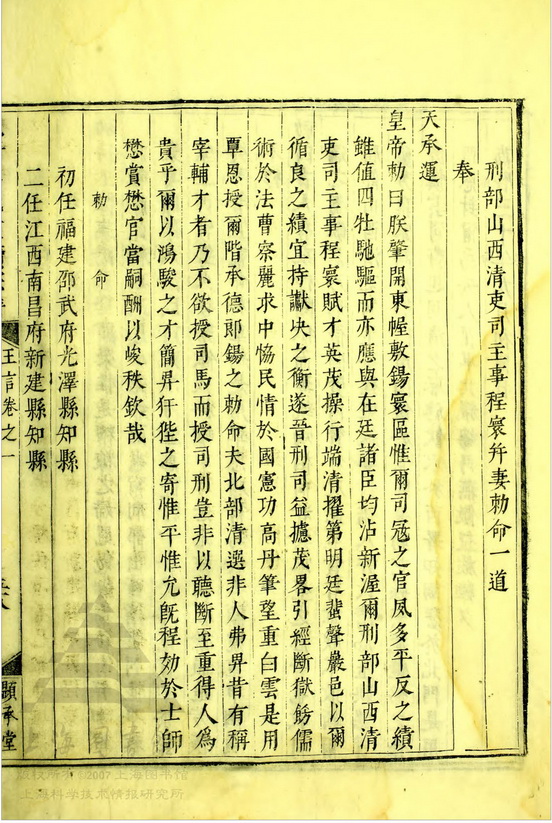 刑部山西清吏司主事程寰并妻勅命一道
奉
天承運
皇帝勅曰朕肇開東幄敷錫寰區惟爾司冦之官夙多平反之績
雖值四牡馳驅而亦應與在廷諸臣均沾新渥爾刑部山西清
吏司主事程寰賦才英茂操行端清擢第明廷蜚聲嚴邑以爾
循良之績宜持讞决之衡遂晉刑司益攄茂畧引經斷獄飭儒
術於法曹察麗求中恊民情於國憲功高丹筆望重白雲是用
覃恩授爾階承德郎錫之勅命夫北部清選非人弗昇昔有稱
宰輔才者乃不欲授司馬而授司刑豈非以聽斷至重得人為
貴乎爾以鴻駿之才簡昇犴狴之寄惟平惟允旣程効於士師
懋賞懋官當嗣酬以峻秩欽哉
勅命
初任福建邵武府光澤縣知縣
二任江西南昌府新建縣知縣
王言卷之一
顯承堂
版权所有 2007 上海图书馆
上海科学技术情报研究所